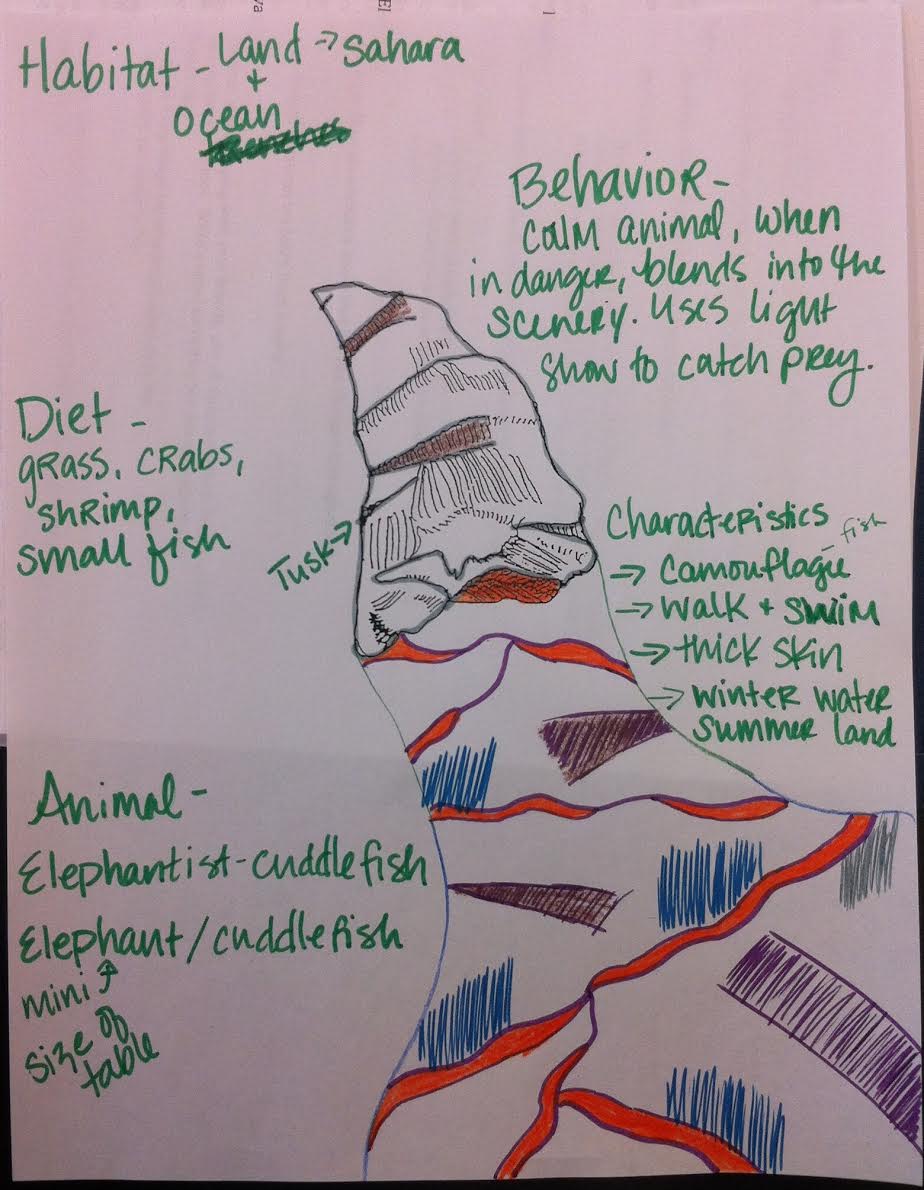 Habitat - Land → Sahara
+
Ocean
Behavior -
calm animal, when
in danger, blends into the
scenery. Uses light
show to catch prey.
Diet -
grass, crabs,
shrimp,
small fish
Tusk →
Characteristics
→ Camouflage - fish
→ walk + swim
→ thick skin
→ winter water
summer land
Animal -
Elephantist-cuddlefish
Elephant/cuddlefish
mini
size of
table